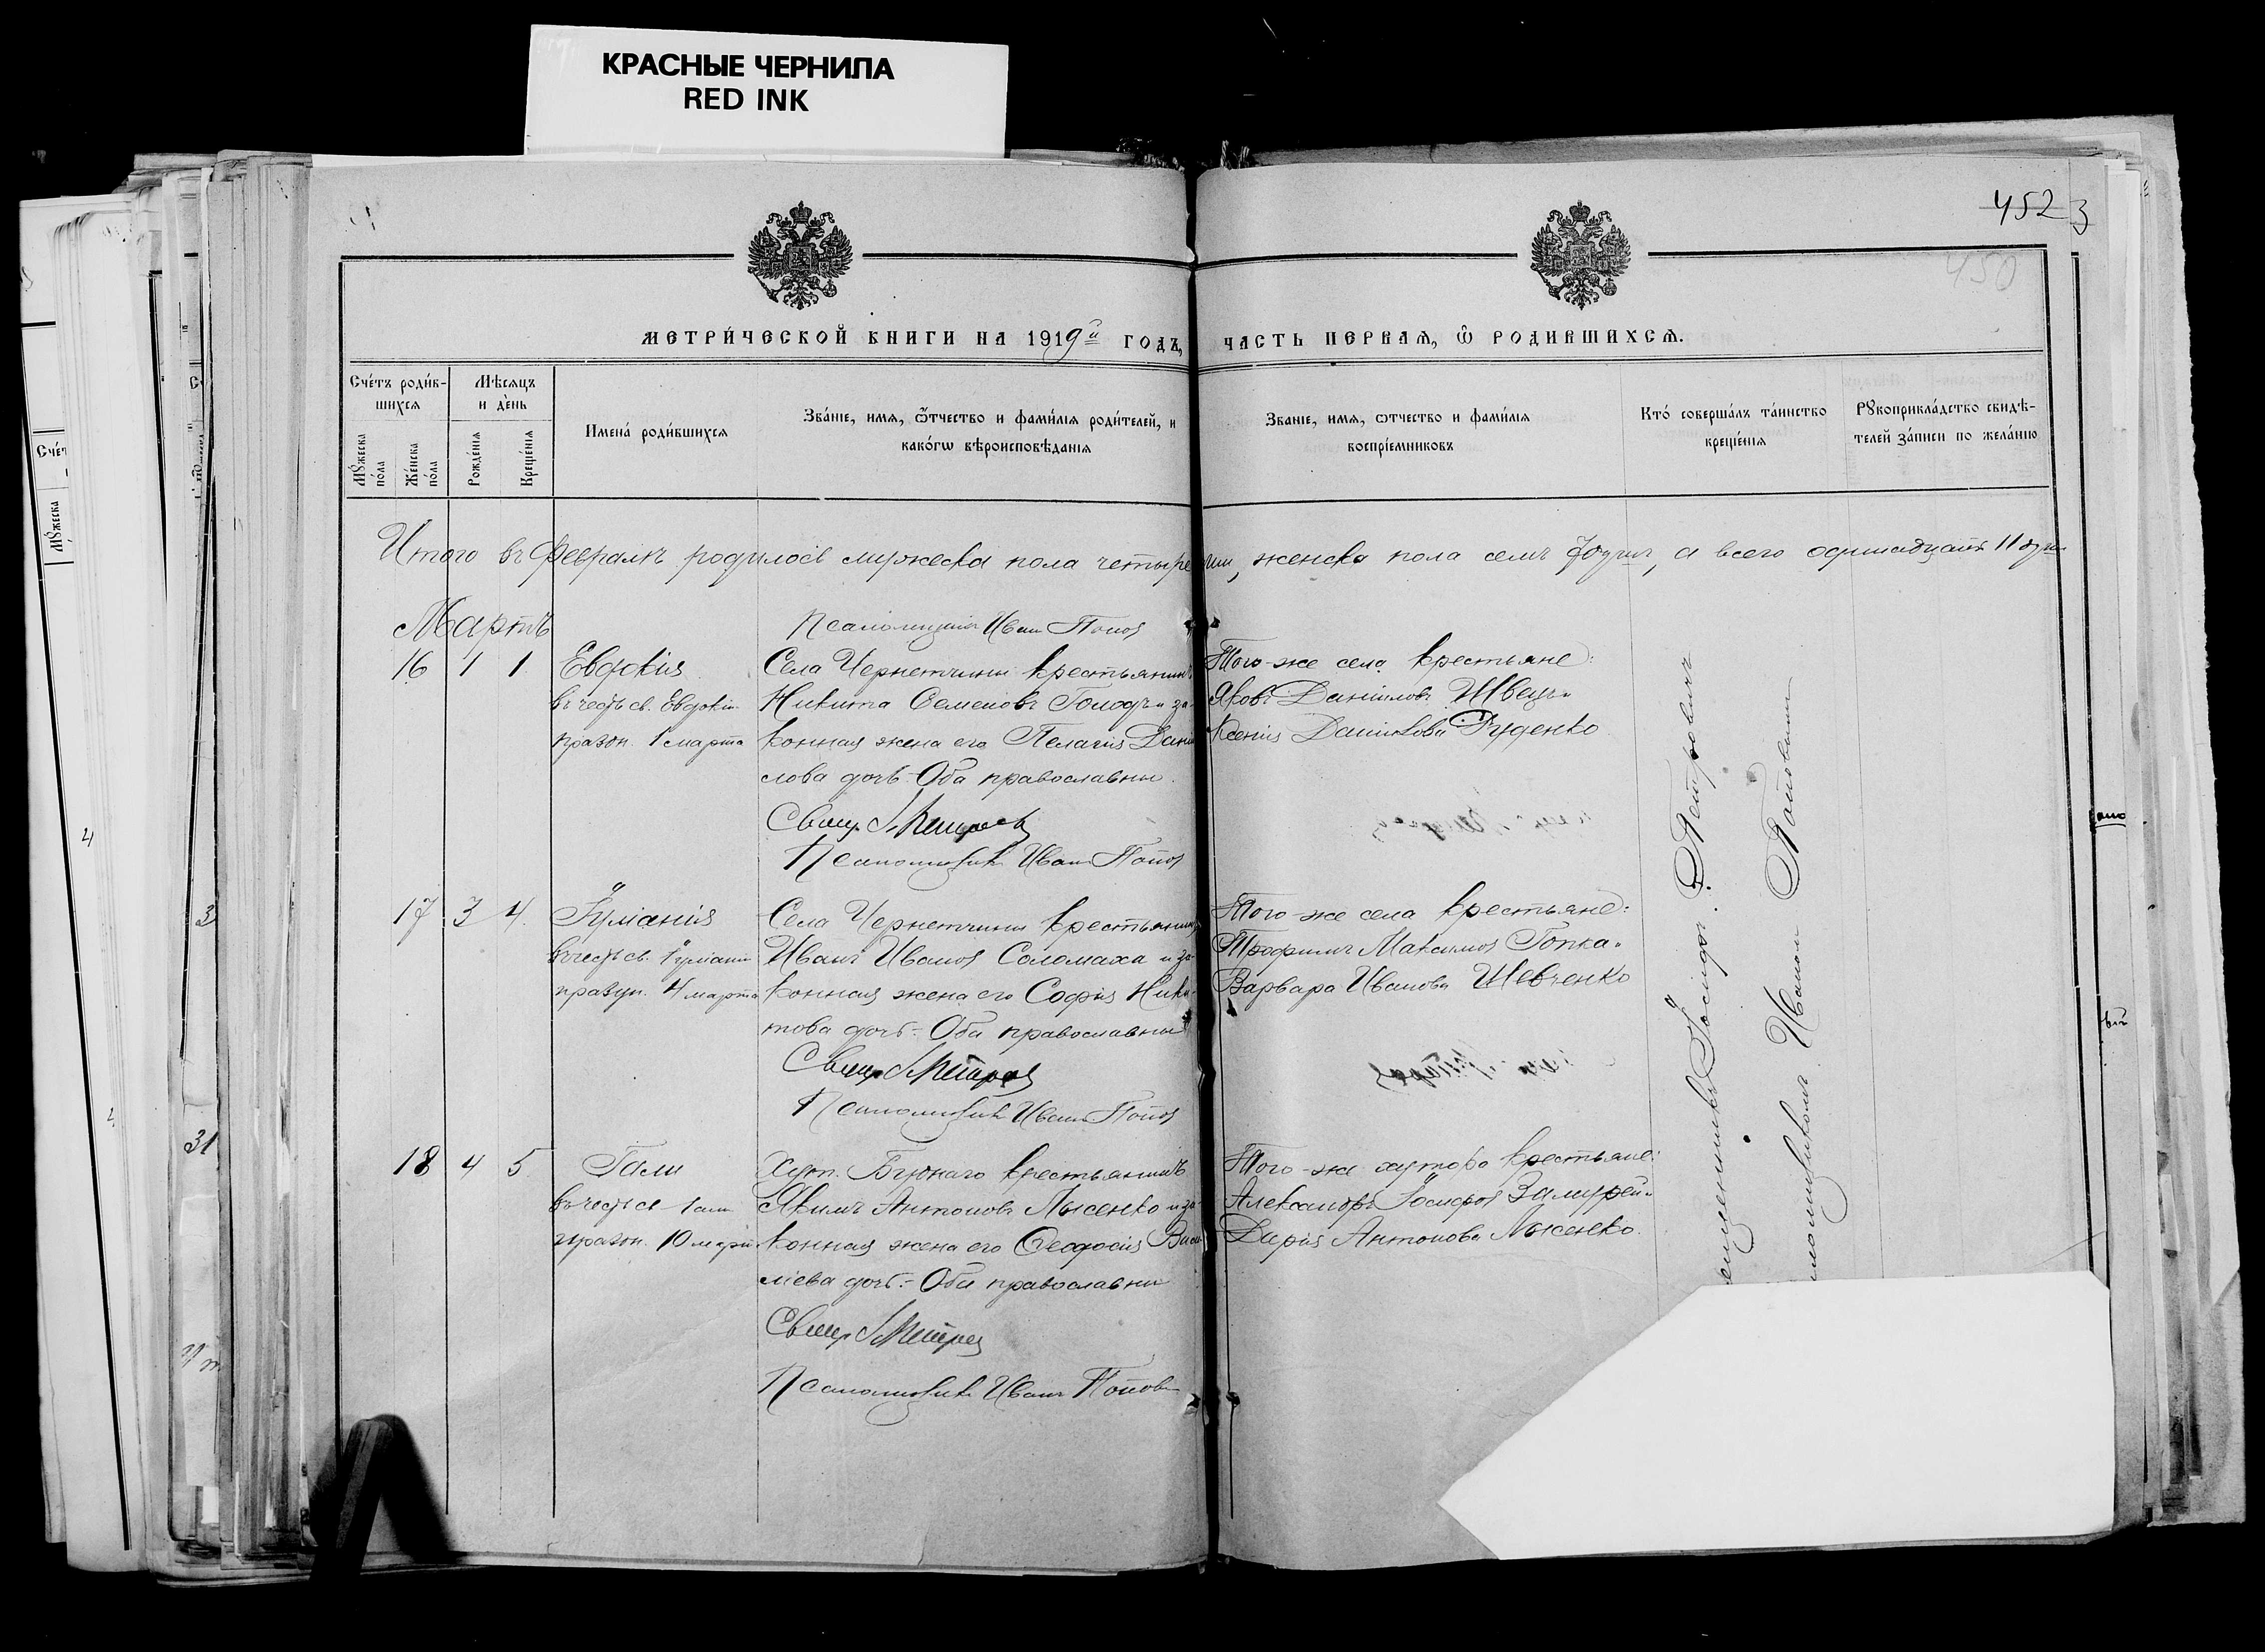 КРАСНЫЕ ЧЕРНИЛА
RED INK
452 3
450
МЕТРИ́ЧЕСКОЙ КНИГИ НА 1919й ГОДЪ,
ЧАСТЬ ПЕРВАЯ, Ѿ РОДИВШИХСЯ.
Сче́тъ роди́в-
шихся
Мꙋ́жеска по́ла
Же́нска по́ла
Мѣ́сяцъ
и де́нь
Рожденія
Креще́нія
Имена́ роди́вшихся
Зва́ніе, имя, ѻ́тчество и фами́лія роди́телей, и
како́гѡ вѣроисповѣ́данія
Званіе, имя, ѻтчество и фами́лія
воспріемниковъ
Кто́ соверша́лъ та́инство
креще́нія
Рꙋкоприкла́дство свидѣ́-
телей за́писи по жела́нію
Итого въ Февралѣ родилось мужеска пола четыре, женска пола семь 7 душъ, а всего одинадцать 11 душъ
Мартъ
Псаломщикъ Иванъ Попов
16 1 1 Евдокія
въ честь св. Евдокіи
празон. 1 марта
Села Чернетчины крестьянинъ
Никита Семеновъ Голодъ и за-
конная жена его Пелагія Дани-
лова дочь. Оба православны.
Свящ. І. Петров
Псаломщикъ Иванъ Попов
Того-же села крестьяне:
Яковъ Даниловъ Швецъ и
Ксенія Данилова Руденко
17 3 4 Іуліанія
въ честь св. Іуліаніи
празун. 4 марта
Села Чернетчины крестьянинъ
Иванъ Иванов Соломаха и за-
конная жена его Софія Ники-
това дочь. Оба православны
Свящ. І. Петров
Псаломщикъ Иванъ Попов
Того-же села крестьяне:
Трофимъ Максимов Гопка и
Варвара Иванова Шевченко
18 4 5 Галя
въ честь св.
празон. 10 март.
Хут. крестьянинъ
Якимъ Антоновъ Лысенко и за-
конная жена его Ѳеодосія Васи-
ліева дочь. Оба православны
Свящ. І. Петров
Псаломщикъ Иванъ Попов
Того-же хутора крестьяне:
Александръ Замурей и
Дарія Антонова Лысенко.
Іосидор. Петровичъ
Иваномъ Поповымъ